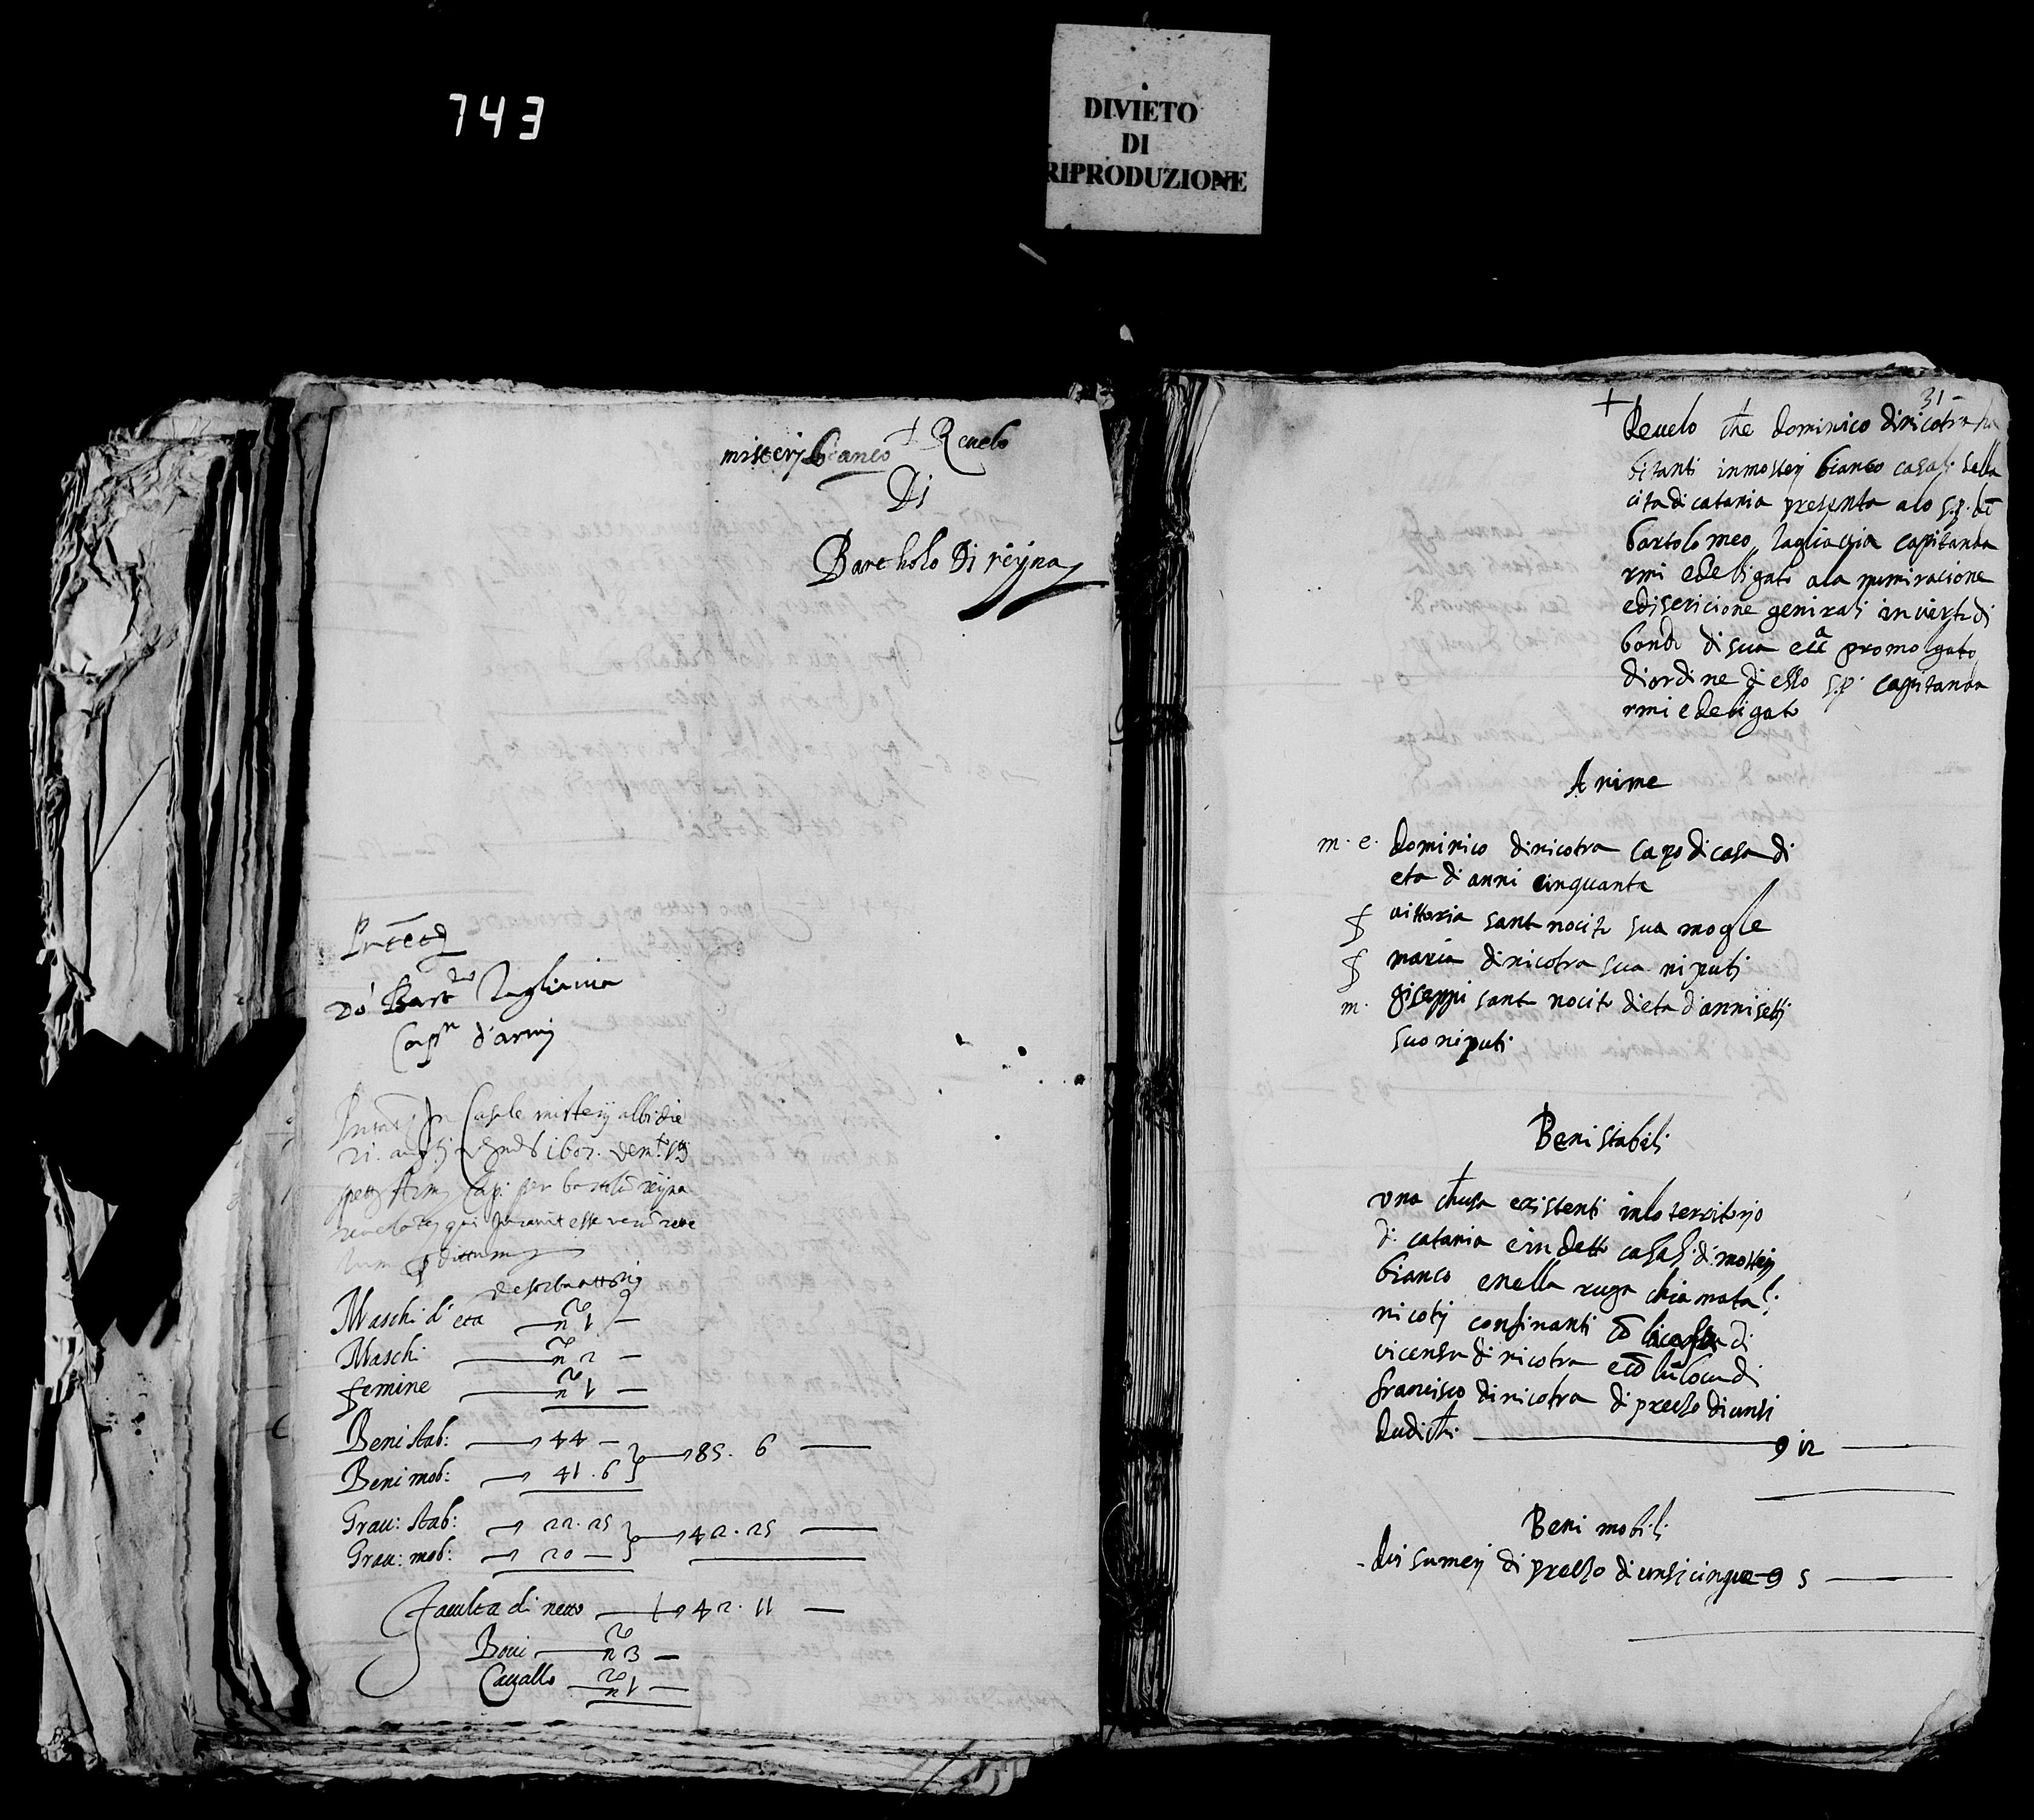 743
DIVIETO
DI
RIPRODUZIONE
misterj bianco + Revelo
Di
Bartholo Di reyna
Do Bart.eo Tagliavia
Cap.n d'armi
Casale misterij albi die
Maschi d'eta n.o 1
Maschi n.o 2
femine n.o 1
Beni stab: 44
85. 6
Beni mob: 41. 6
Grav: stab: 22. 25
42. 25
Grav: mob: 20
Faculta di netto 42. 11
Bovi n.o 3
Cavallo n.o 1
31
+ Revelo che dominico dinicotra ha
bitanti in mosterj bianco casali della
cita di catania presenta a lo s.p. do
bartolomeo tagliavia capitan da
rmi e deligato a la numiracione
e discricione genirali in virtu di
bando di sua ecc.a promolgato
di ordine di esso s.p. capitan da
rmi e deligato
Anime
m. e. dominico dinicotra capo di casa di
eta di anni cinquanta
f vittoria santo nocito sua mogle
f maria dinicotra sua niputi
m. giseppi santo nocito di eta d'anni setti
suo niputi
Beni stabili
una chusa existenti in lo territorjo
di catania e in detto casali di mosterj
bianco e nella ruga chiamata li
nicotrj confinanti co di
vicensu di nicotra e co lu locu di
francisco di nicotra di preczo di unsi
dudichi 12
Beni mobili
- dui sumerj di preczo di unsi cinque 5